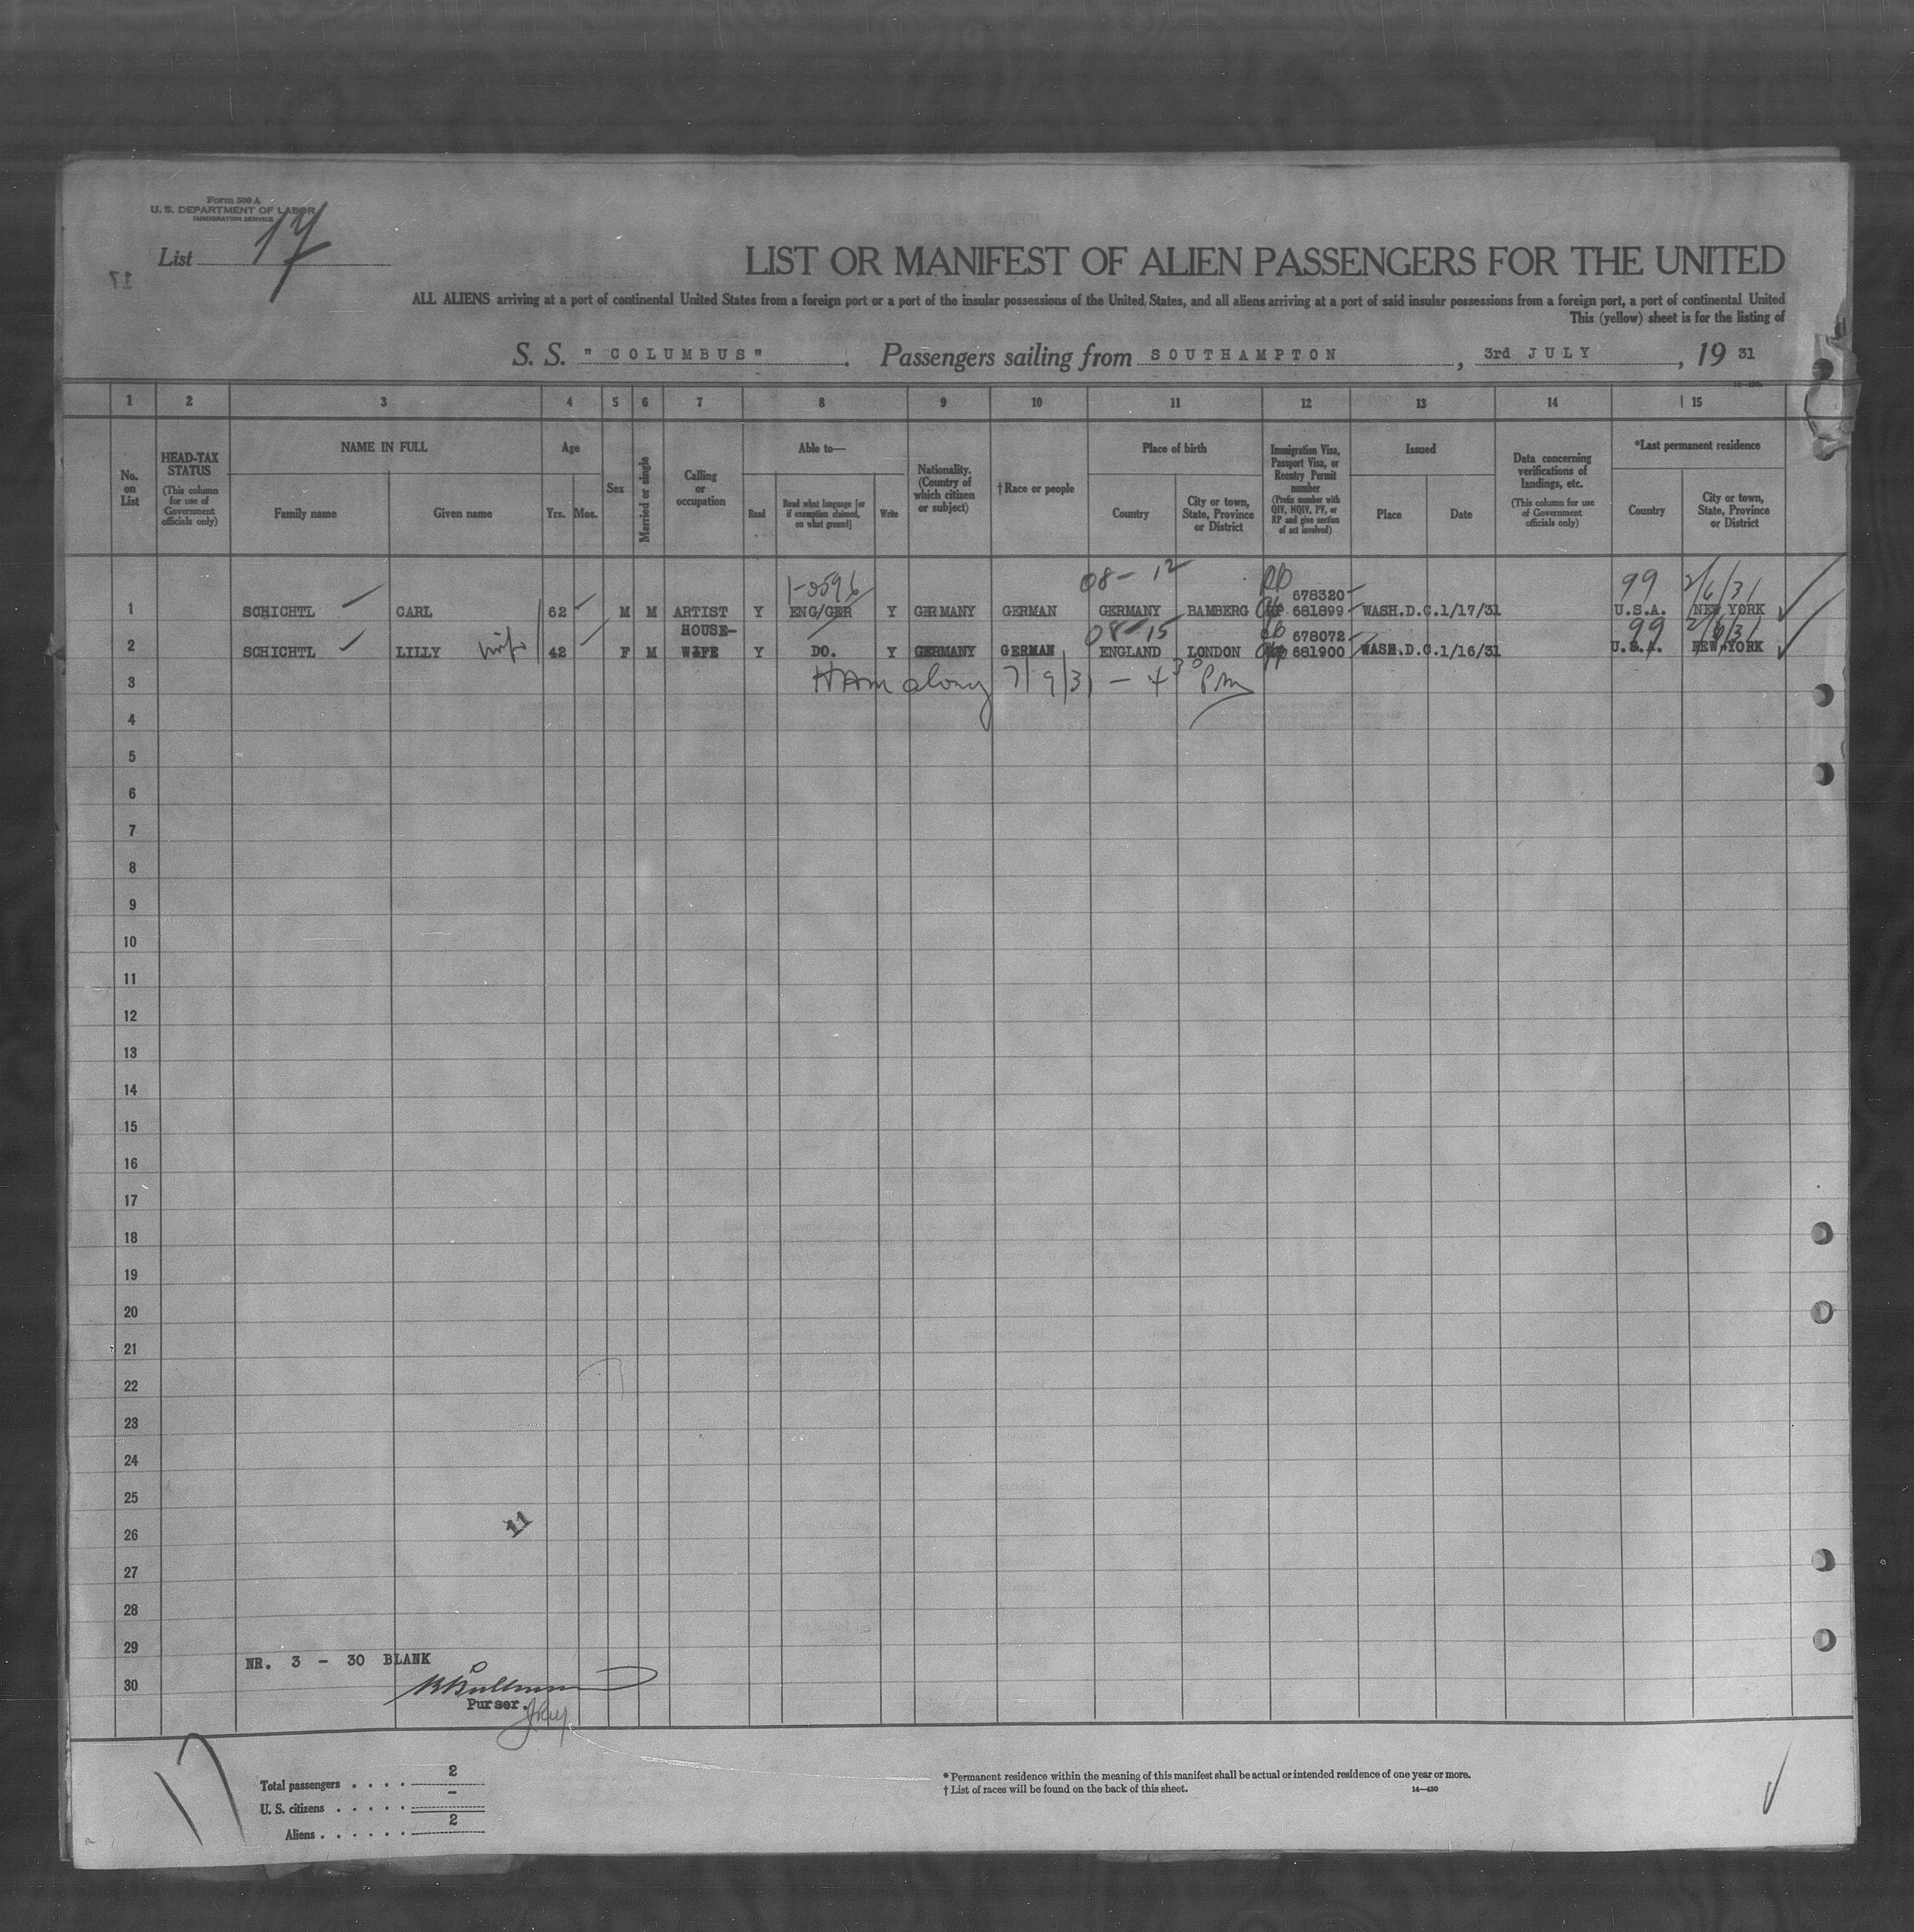 Form 500 A
U. S. DEPARTMENT OF LABOR
IMMIGRATION SERVICE
List 17
17
LIST OR MANIFEST OF ALIEN PASSENGERS FOR THE UNITED
ALL ALIENS arriving at a port of continental United States from a foreign port or a port of the insular possessions of the United States, and all aliens arriving at a port of said insular possessions from a foreign port, a port of continental United
This (yellow) sheet is for the listing of
S. S. "COLUMBUS". Passengers sailing from SOUTHAMPTON, 3rd JULY, 19 31
1 2 3 4 5 6 7 8 9 10 11 12 13 14 15
No. on List
HEAD-TAX STATUS (This column for use of Government officials only)
NAME IN FULL
Family name Given name
Age
Yrs. Mos.
Sex
Married or single
Calling or occupation
Able to—
Read Read what language [or if exemption claimed, on what ground] Write
Nationality. (Country of which citizen or subject)
†Race or people
Place of birth
Country City or town, State, Province or District
Immigration Visa, Passport Visa, or Reentry Permit number (Prefix number with QIV, NQIV, PV, or RP and give section of act involved)
Issued
Place Date
Data concerning verifications of landings, etc. (This column for use of Government officials only)
*Last permanent residence
Country City or town, State, Province or District
1-3596 08-12 678320 99 2/6/31
1 SCHICHTL CARL 62 M M ARTIST Y ENG/GER Y GERMANY GERMAN GERMANY BAMBERG 681899 WASH.D.C. 1/17/31 U.S.A. NEW YORK
HOUSE- 08-15 678072 99 2/6/31
2 SCHICHTL LILLY wife 42 F M WIFE Y DO. Y GERMANY GERMAN ENGLAND LONDON 681900 WASH.D.C. 1/16/31 U.S.A. NEW YORK
3 along 7/9/31 - 4 30 Pm
4
5
6
7
8
9
10
11
12
13
14
15
16
17
18
19
20
21
22
23
24
25
26
11
27
28
29
NR. 3 - 30 BLANK
30
Purser.
17
Total passengers . . . . 2
U. S. citizens . . . . . -
Aliens . . . . . . 2
* Permanent residence within the meaning of this manifest shall be actual or intended residence of one year or more.
† List of races will be found on the back of this sheet.
14—430